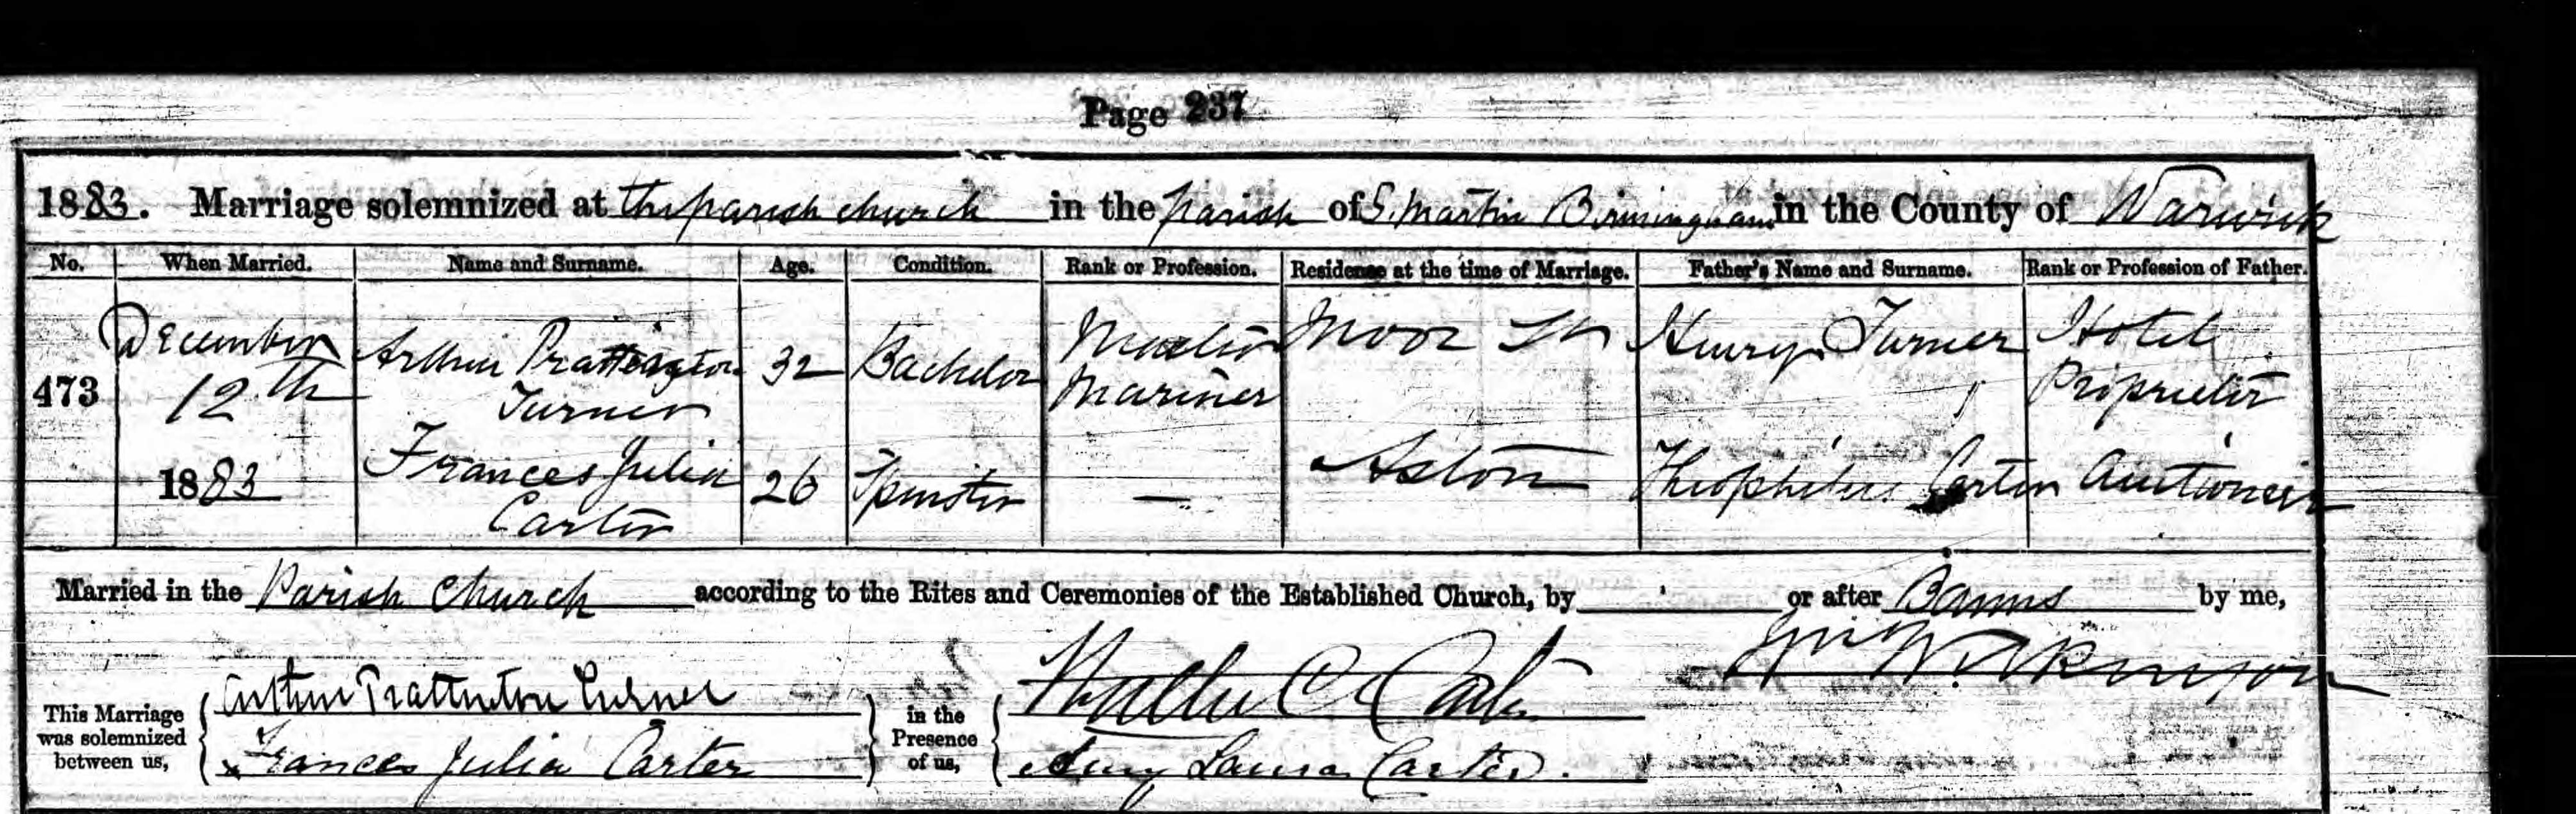 Page 237
1883. Marriage solemnized at the parish church in the parish of S. Martin Birmingham in the County of Warwick
No. When Married. Name and Surname. Age. Condition. Rank or Profession. Residence at the time of Marriage. Father's Name and Surname. Rank or Profession of Father.
473 December 12th 1883 Arthur Prattington Turner 32 Bachelor Master Mariner Moor St Henry Turner Hotel Proprietor
Frances Julia Carter 26 Spinster — Aston Theophilus Carter Auctioneer
Married in the Parish Church according to the Rites and Ceremonies of the Established Church, by or after Banns by me,
This Marriage was solemnized between us, Arthur Prattinton Turner in the Presence of us, Walter C Carter Wm Wilkinson
x Frances Julia Carter Amy Laura Carter.